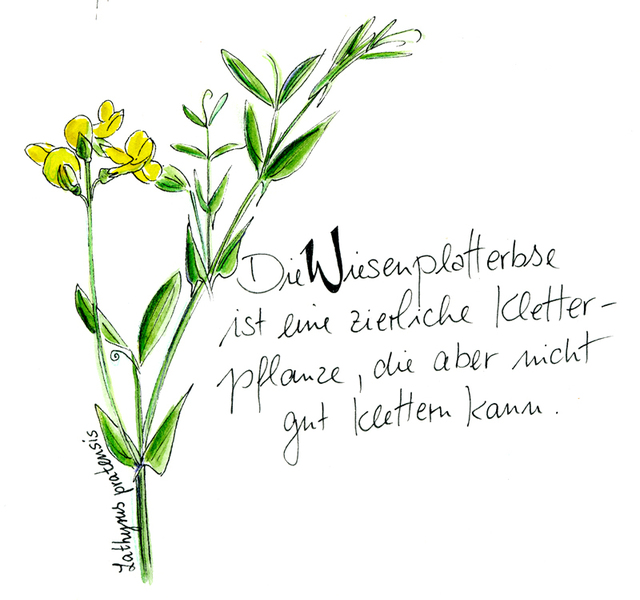 Die Wiesenplatterbse
ist eine zierliche Kletter-
pflanze, die aber nicht
gut klettern kann.
Lathyrus pratensis